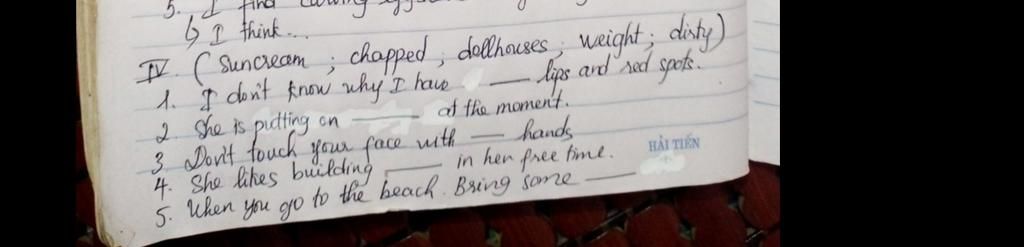 5. I find
↳ I think...
IV. (suncream ; chapped ; dollhouses ; weight ; dirty)
1. I don't know why I have ___ lips and red spots.
2. She is putting on ___ at the moment.
3 Don't touch your face with ___ hands
4. She likes building ___ in her free time.
5. When you go to the beach. Bring some ___
HẢI TIẾN